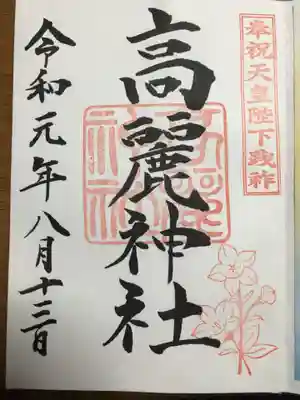 奉祝天皇陛下践祚
高麗神社
令和元年八月十三日